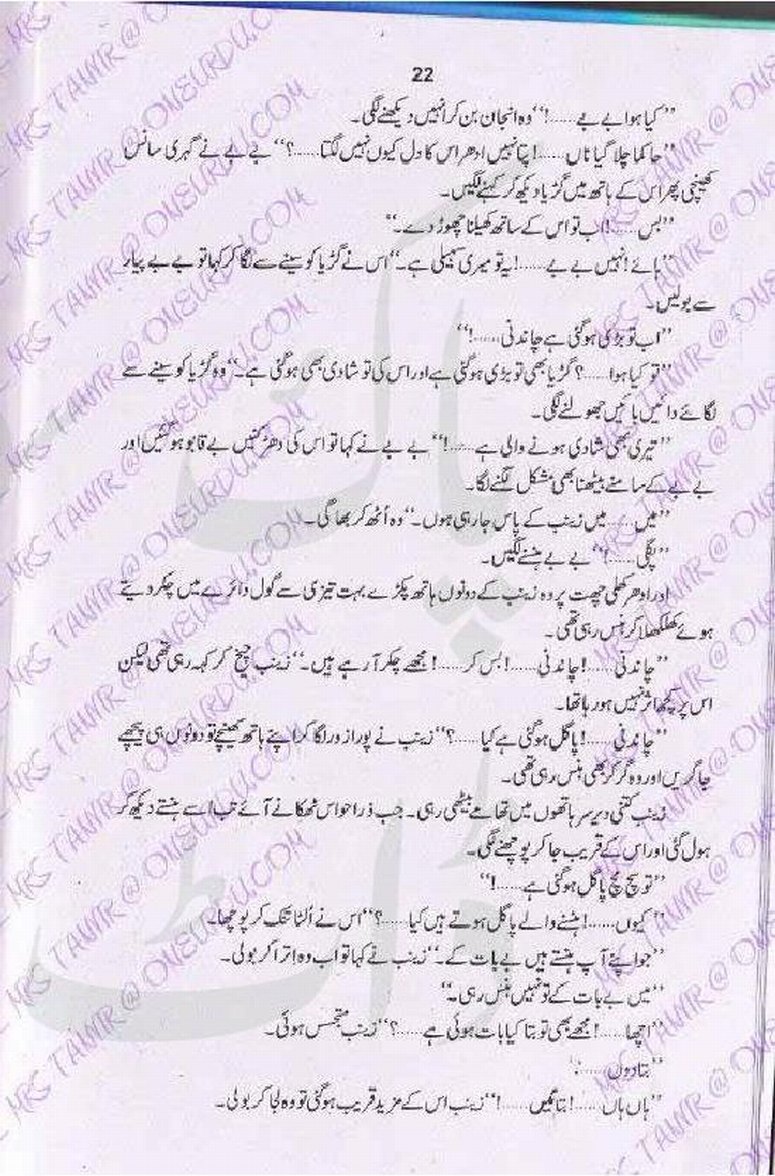 22
”کیا ہوا بے بے......!“ وہ انجان بن کر انہیں دیکھنے لگی۔
”حاکما چلا گیا ناں......! پتا نہیں ادھر اس کا دل کیوں نہیں لگتا......؟“ بے بے نے گہری سانس
کھینچی پھر اس کے ہاتھ میں گڑیا دیکھ کر کہنے لگیں۔
”بس......! اب تو اس کے ساتھ کھیلنا چھوڑ دے۔“
”ہائے! نہیں بے بے......! یہ تو میری سہیلی ہے۔“ اس نے گڑیا کو سینے سے لگا کر کہا تو بے بے پیار
سے بولیں۔
”اب تو بڑی ہو گئی ہے چاندنی......!“
”تو کیا ہوا......؟ گڑیا بھی تو بڑی ہو گئی ہے اور اس کی تو شادی بھی ہو گئی ہے۔“ وہ گڑیا کو سینے سے
لگائے دائیں بائیں جھولنے لگی۔
”تیری بھی شادی ہونے والی ہے......!“ بے بے نے کہا تو اس کی دھڑکنیں بے قابو ہو گئیں اور
بے بے کے سامنے بیٹھنا بھی مشکل لگنے لگا۔
”میں......میں زینب کے پاس جا رہی ہوں۔“ وہ اُٹھ کر بھاگی۔
”پگلی......!“ بے بے ہنسنے لگیں۔
ادر ادھر کھلی چھت پر وہ زینب کے دونوں ہاتھ پکڑے بہت تیزی سے گول دائرے میں چکر دیتے
ہوئے کھلکھلا کر ہنس رہی تھی۔
”چاندنی......! چاندنی......! بس کر......! مجھے چکر آ رہے ہیں۔“ زینب چیخ کر کہہ رہی تھی لیکن
اس پر کچھ اثر نہیں ہو رہا تھا۔
”چاندنی......! پاگل ہو گئی ہے کیا......؟“ زینب نے پورا زور لگا کر اپنے ہاتھ کھینچے تو دونوں ہی پیچھے
جا گریں اور وہ گر کر بھی ہنس رہی تھی۔
زینب کتنی دیر سر ہاتھوں میں تھامے بیٹھی رہی۔ جب ذرا حواس ٹھکانے آئے تب اسے ہنستے دیکھ کر
ہول گئی اور اس کے قریب جا کر پوچھنے لگی۔
”تو سچ مچ پاگل ہو گئی ہے......!“
”کیوں......! ہنسنے والے پاگل ہوتے ہیں کیا......؟“ اس نے اُلٹا تنک کر پوچھا۔
”جو اپنے آپ ہنستے ہیں بے بات کے۔“ زینب نے کہا تو اب وہ اترا کر بولی۔
”میں بے بات کے تو نہیں ہنس رہی۔“
”اچھا......! مجھے بھی تو بتا کیا بات ہوئی ہے......؟“ زینب متجسس ہوئی۔
”بتا دوں......؟“
”ہاں ہاں......! بتائیں......!“ زینب اس کے مزید قریب ہو گئی تو وہ لجا کر بولی۔
MRS TANVIR @ ONEURDU.COM
پاک
ڈاٹ